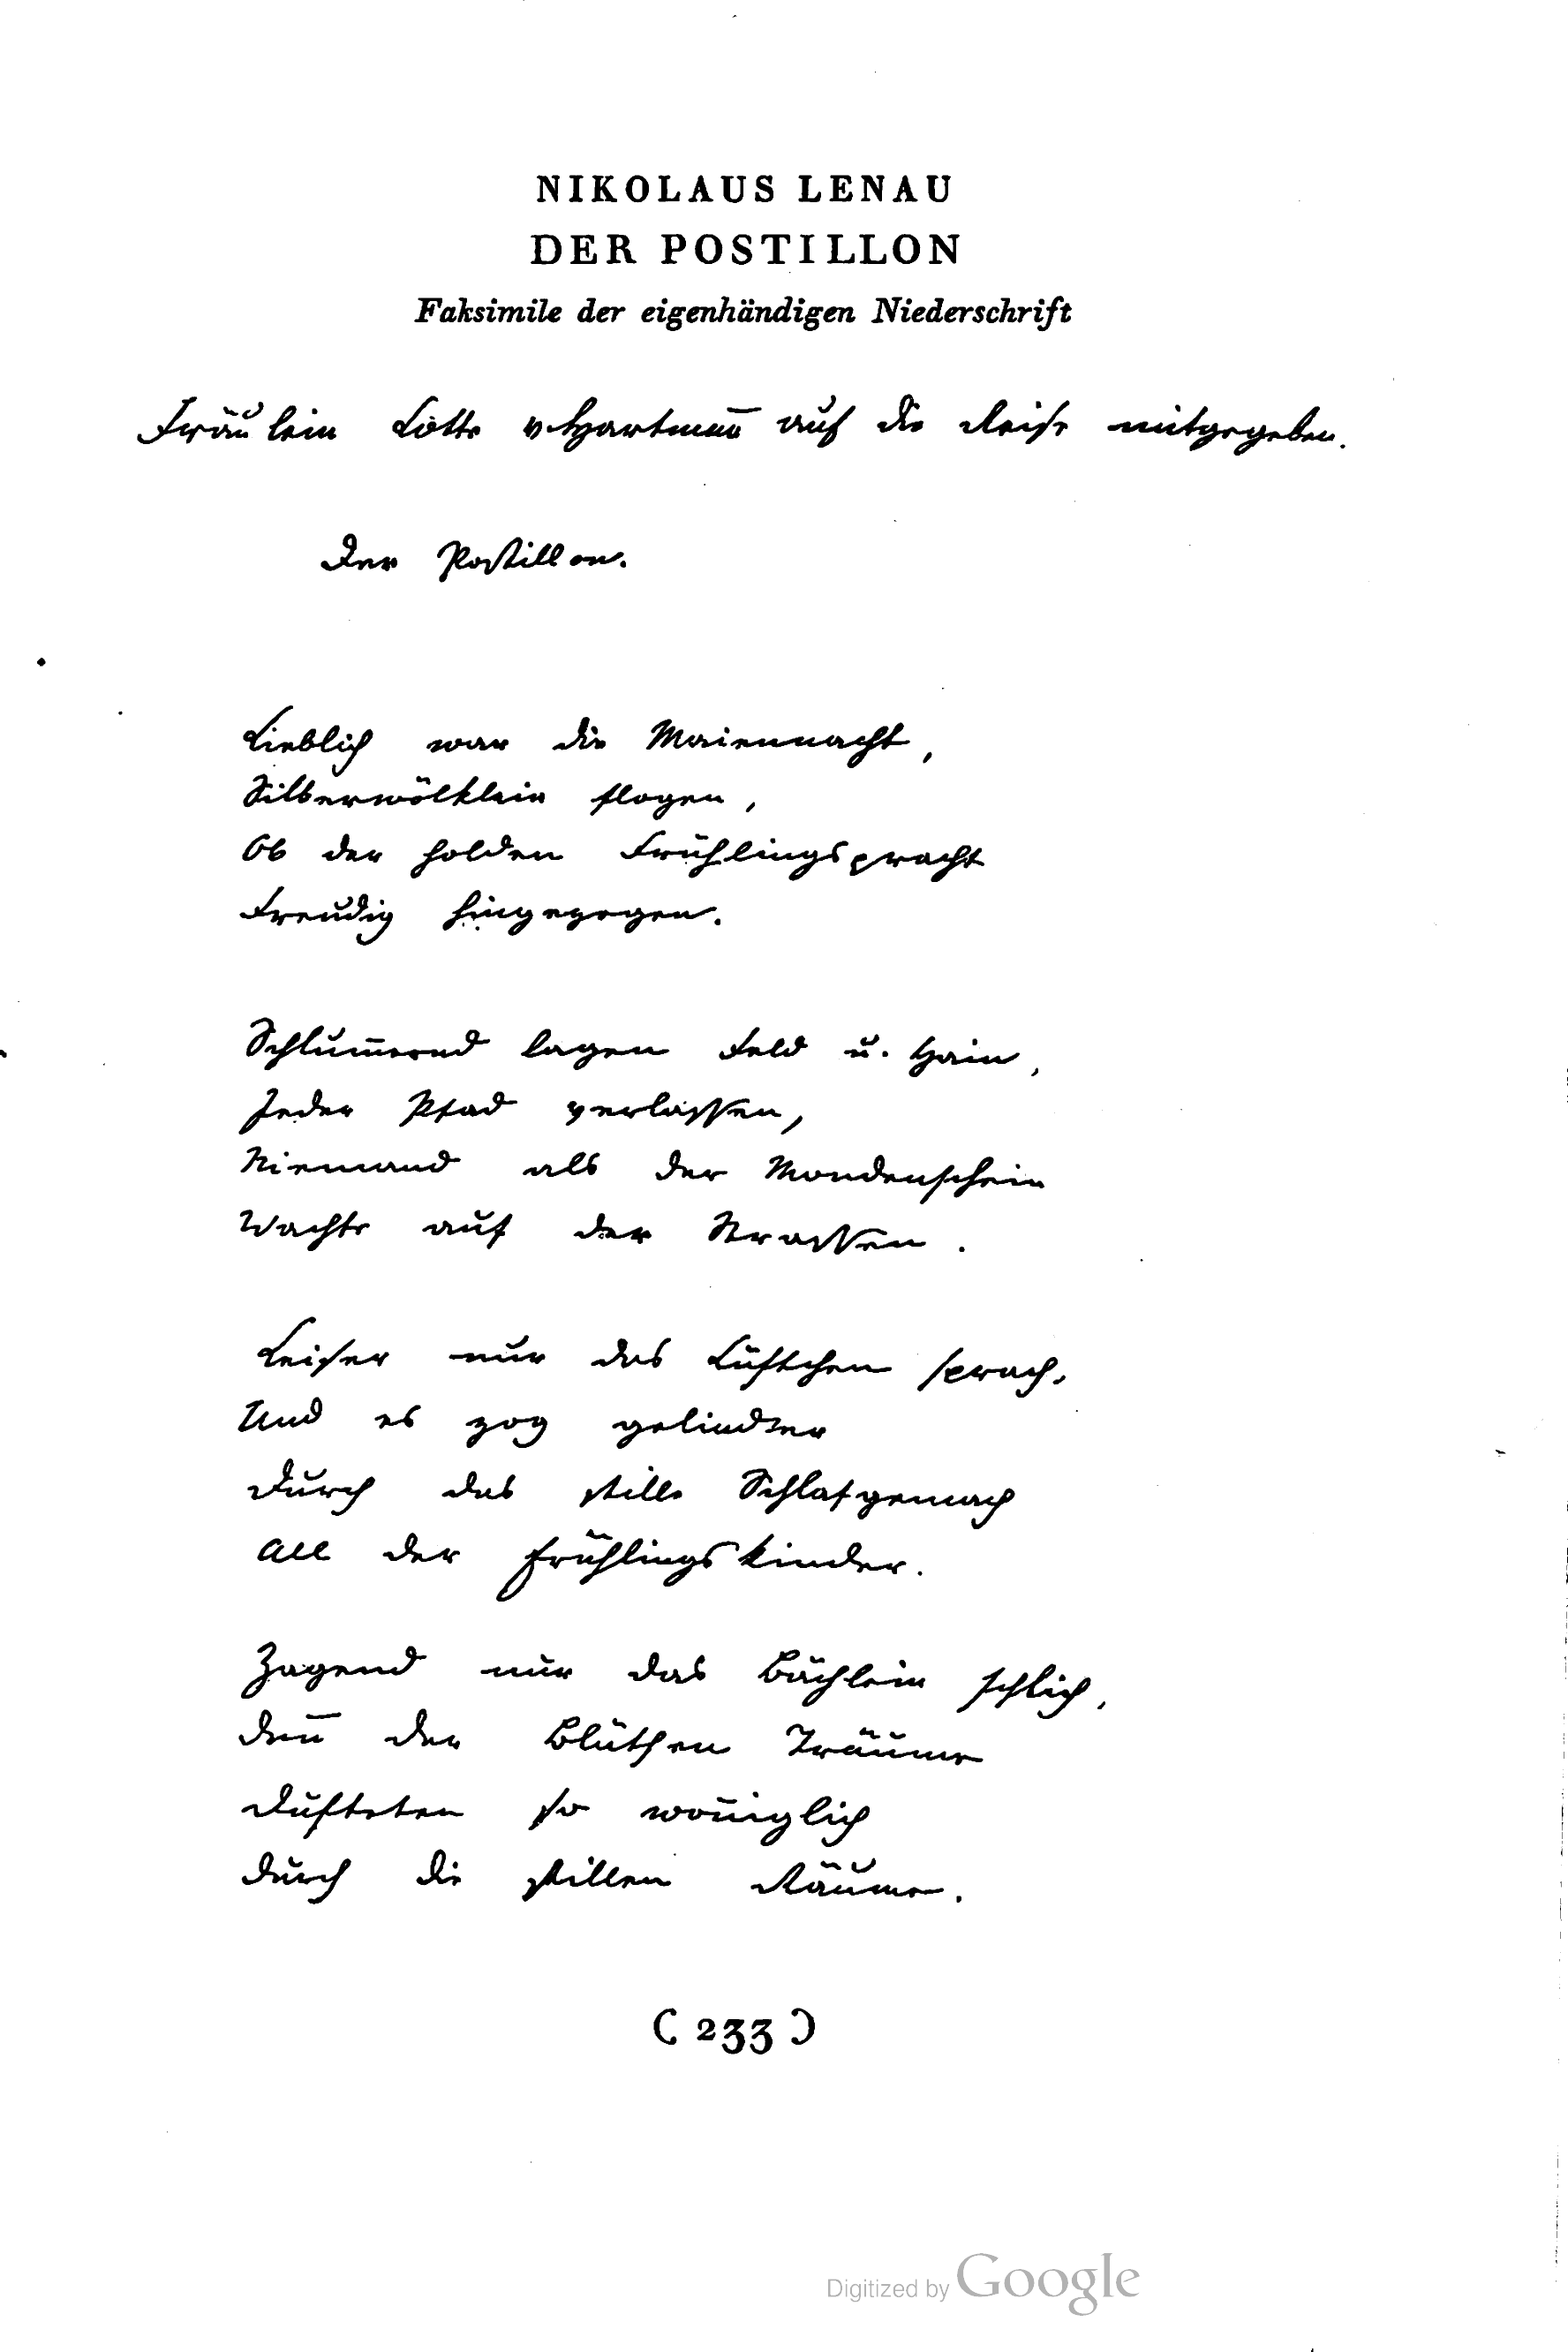 NIKOLAUS LENAU
DER POSTILLON
Faksimile der eigenhändigen Niederschrift
Fräulein Lotte v Hartmañ auf die Reise mitgegeben.
Der Postillon.
Lieblich war die Maiennacht,
Silberwölklein flogen,
Ob der holden Frühlingspracht
Freudig hingezogen.
Schlum̄ernd lagen Feld u. Hain,
Jeder Pfad verlassen,
Niemand als der Mondenschein
Wachte auf der Strassen.
Leiser nur das Lüftchen sprach,
Und es zog gelinder
Durch das stille Schlafgemach
All der Frühlingskinder.
Zagend nur das Bächlein schlich,
Den̄ der Blüthen Träume
Dufteten so won̄iglich
Durch die stillen Räume.
( 233 )
Digitized by Google